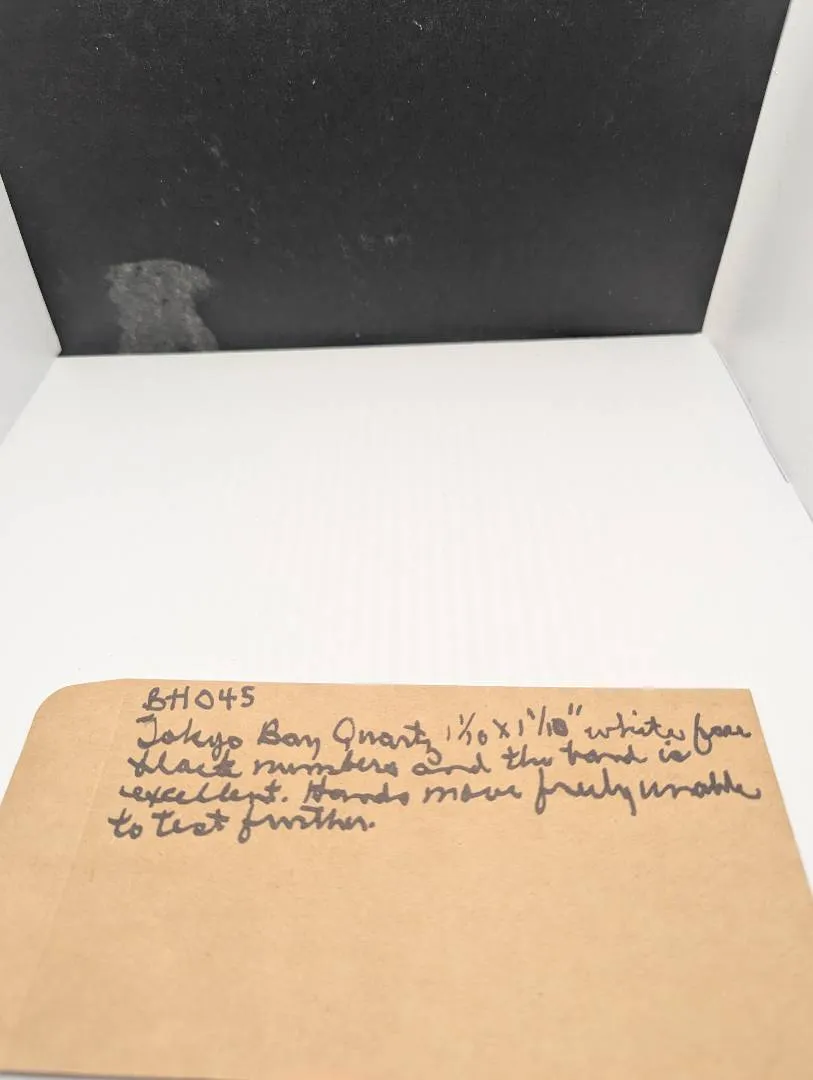 BH045
Tokyo Bay Quartz 1 1/10 X 1 1/10" white face
black numbers and the band is
excellent. Hands move freely unable
to test further.